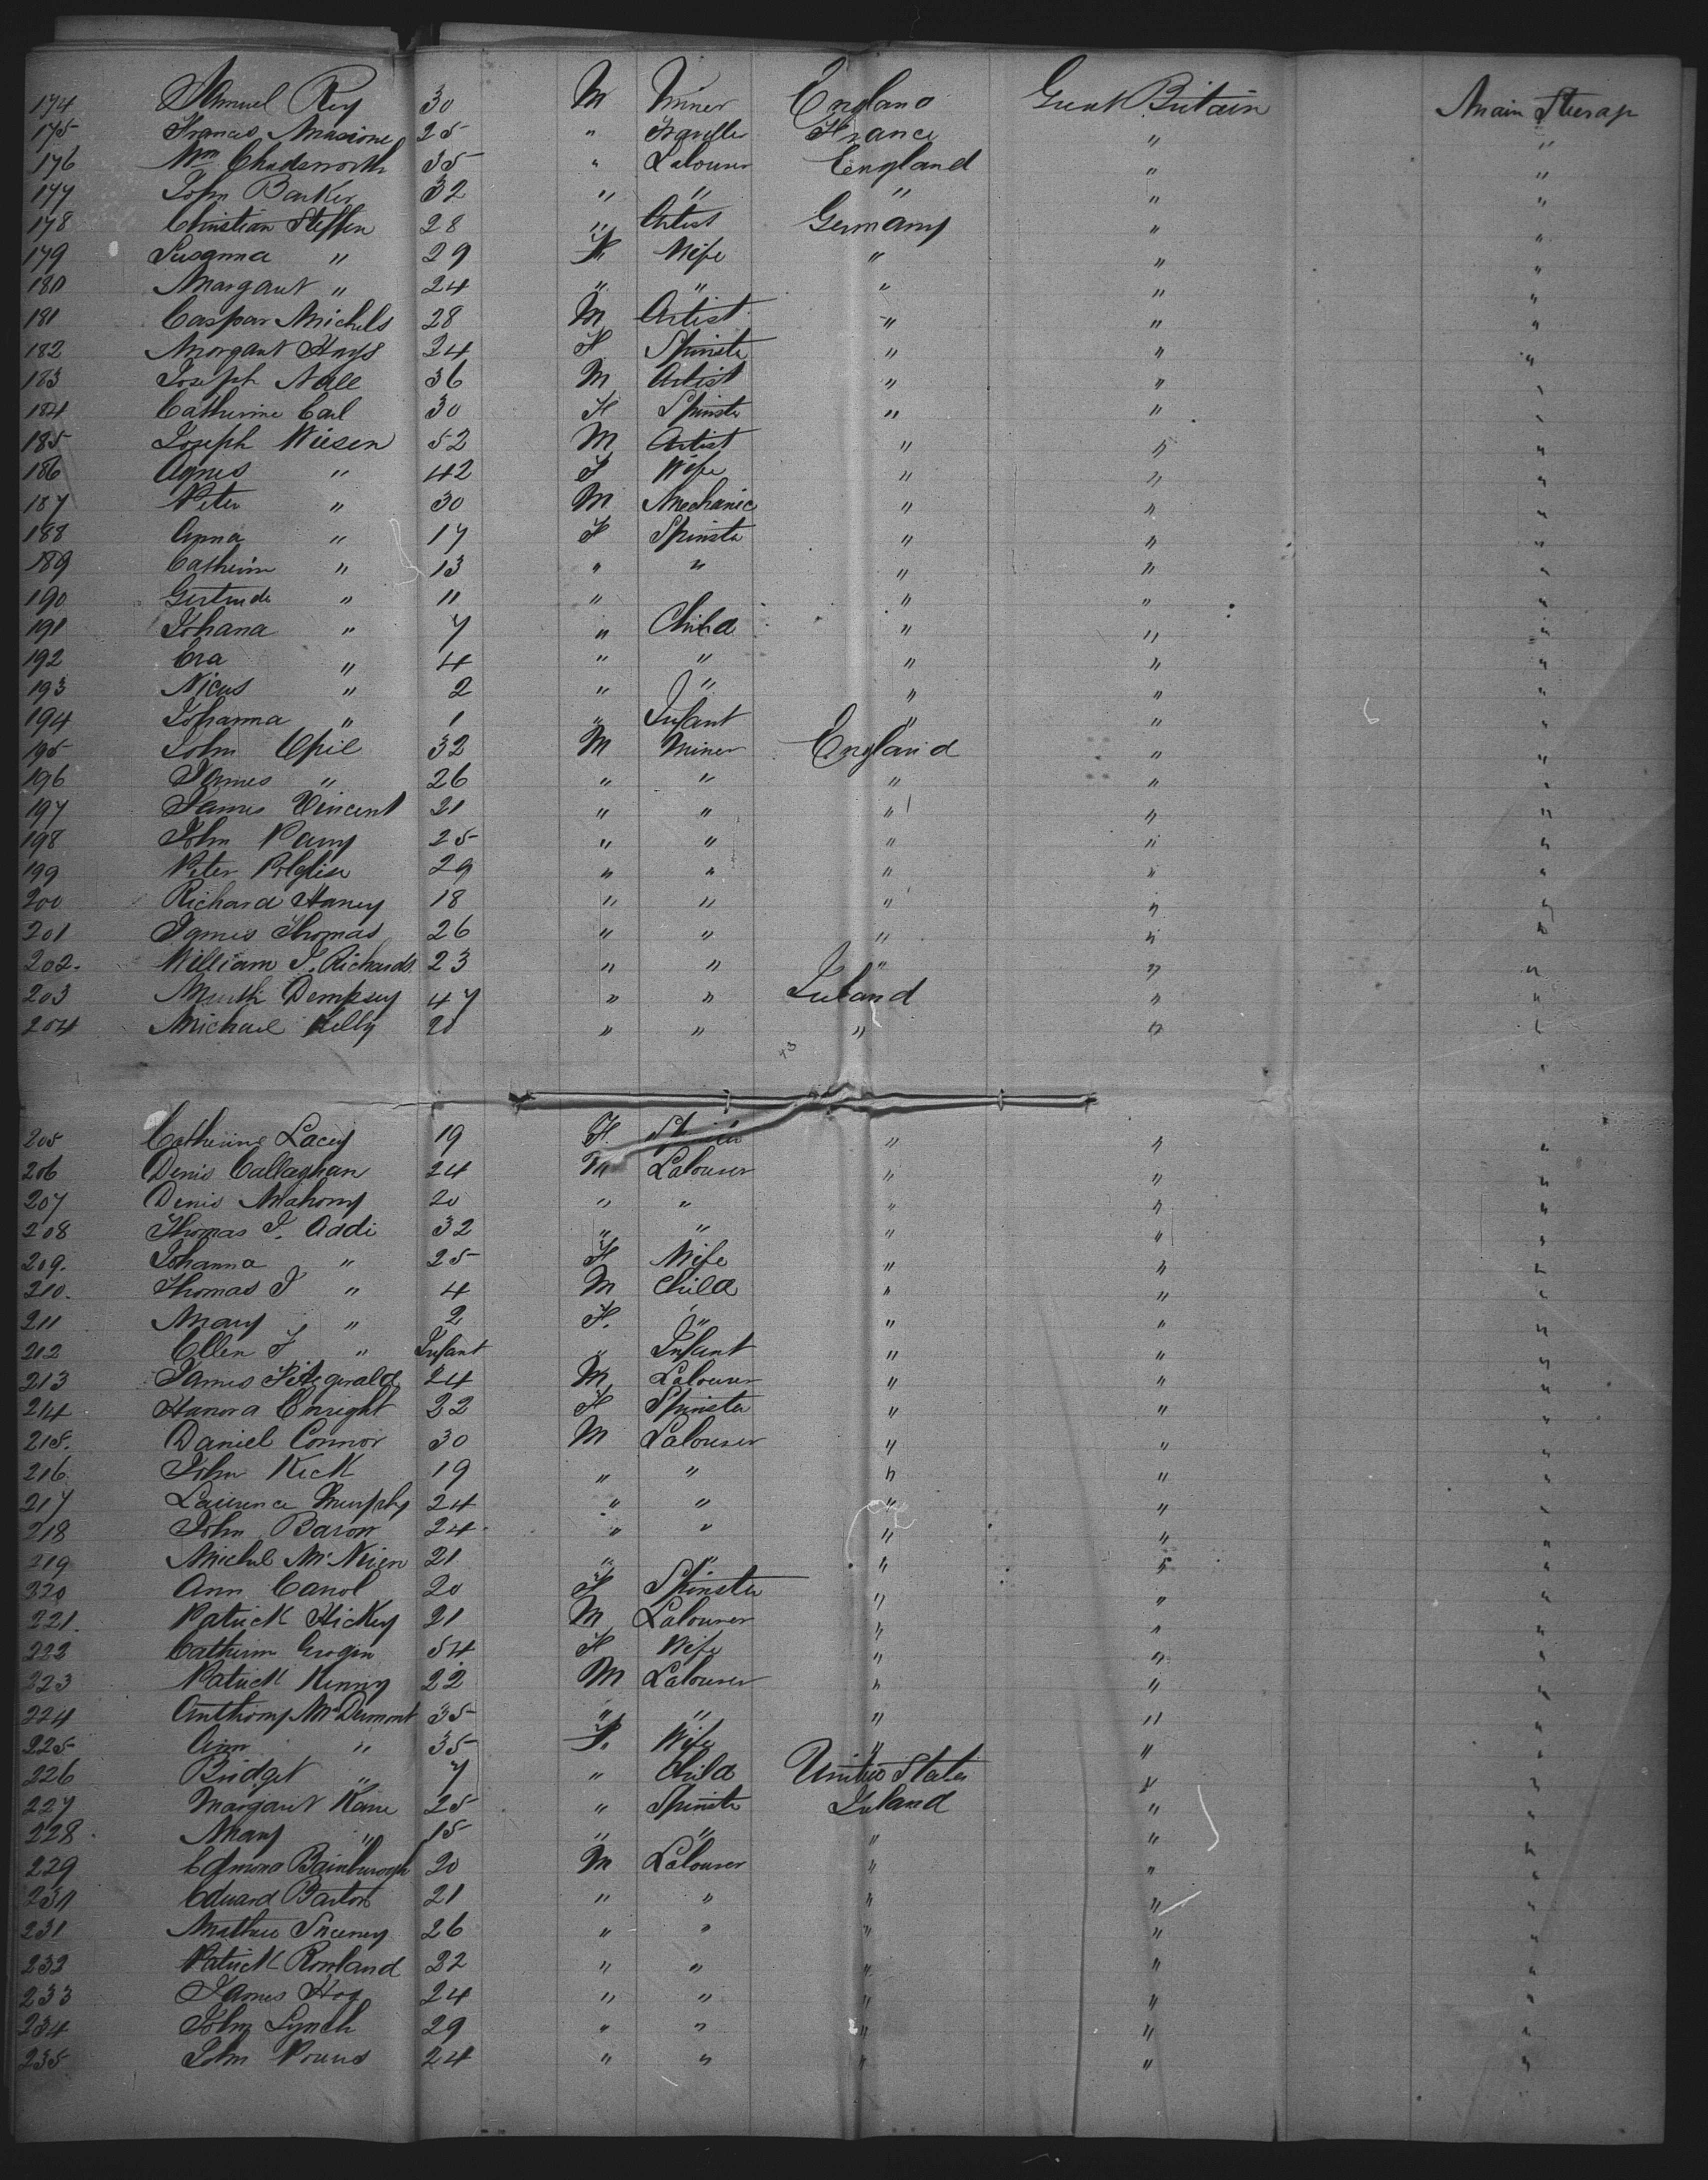 174 Samuel Rey 30 M Miner England Great Britain Main Steerage
175 Francis 25 " Traveller France " "
176 Wm Chadsworth 35 " Labourer England " "
177 John Barker 32 " " " " "
178 Christian Steffen 28 " Artist Germany " "
179 Susanna " 29 F. Wife " " "
180 Margaret " 24 " " " " "
181 Caspar Michels 28 M Artist " " "
182 Margaret Hays 24 F Spinster " " "
183 Joseph Nall 36 M Artist " " "
184 Catherine Carl 30 F Spinster " " "
185 Joseph Wiesen 52 M Artist " " "
186 Agnes " 42 F Wife " " "
187 Peter " 30 M Mechanic " " "
188 Anna " 17 F Spinster " " "
189 Catherine " 13 " " " " "
190 Gertrude " 11 " " " "
191 Johana " 7 " Child " " "
192 Eva " 4 " " " " "
193 Nicus " 2 " " " " "
194 Johanna " 1 " Infant " " "
195 John Opie 32 M Miner England " "
196 James " 26 " " " " "
197 James Vincent 21 " " " " "
198 John Parry 25 " " " " "
199 Peter Polglise 29 " " " " "
200 Richard Haney 18 " " " " "
201 James Thomas 26 " " " " "
202. William J. Richards 23 " " " " "
203 Dempsey 47 " " Ireland " "
204 Michael Kelly 20 " " " " "
205 Catherine Lacey 19 F. " " "
206 Denis Callaghan 24 M Labourer " " "
207 Denis Mahony 20 " " " " "
208 Thomas J. Addi 32 " " " " "
209. Johanna " 25 F Wife " " "
210. Thomas J " 4 M Child " " "
211 Mary " 2 F. " " " "
212 Ellen J " Infant " Infant " " "
213 James Fitzgerald 24 M Labourer " " "
214 Hanora Enright 22 F Spinster " " "
215. Daniel Connor 30 M Labourer " " "
216 John Kick 19 " " " " "
217 Laurence Murphy 24 " " " " "
218 John Baron 24 " " " " "
219 Michel 21 " " " " "
220 Ann Carrol 20 F Spinster " " "
221. Patrick Hickey 21 M Labourer " " "
222 Catherin Grogin 54 F Wife " " "
223 Patrick Kenny 22 M Labourer " " "
224 Anthony McDermont 35 " " " " "
225 Ann " 35 F. Wife " " "
226 Bridget " 7 " Child United States " "
227 Margaret Kane 25 " Spinster Ireland " "
228 Mary " 15 " " " " "
229 Edmond Bainburough 20 M Labourer " " "
230 Edward Barton 21 " " " " "
231 Mathew Sweeney 26 " " " " "
232 Patrick Rowland 22 " " " " "
233 James Hoy 24 " " " " "
234 John Lynch 29 " " " " "
235 John Pound 24 " " " " "